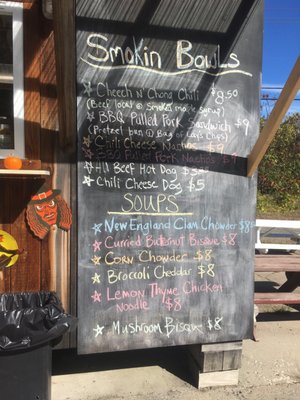 Smokin Bowls
Cheech N Chong Chili $8.50
(Beef local & smoked maple syrup)
BBQ Pulled Pork Sandwich $9
(Pretzel bun & Bag of Lay's Chips)
Chili Cheese Nachos $9
BBQ Pulled Pork Nachos $9
All Beef Hot Dog
Chili Cheese Dog $5
SOUPS
New England Clam Chowder $8
Curried Butternut Bisque $8
Corn Chowder $8
Broccoli Cheddar $8
Lemon Thyme Chicken
Noodle $8
Mushroom Bisque $8